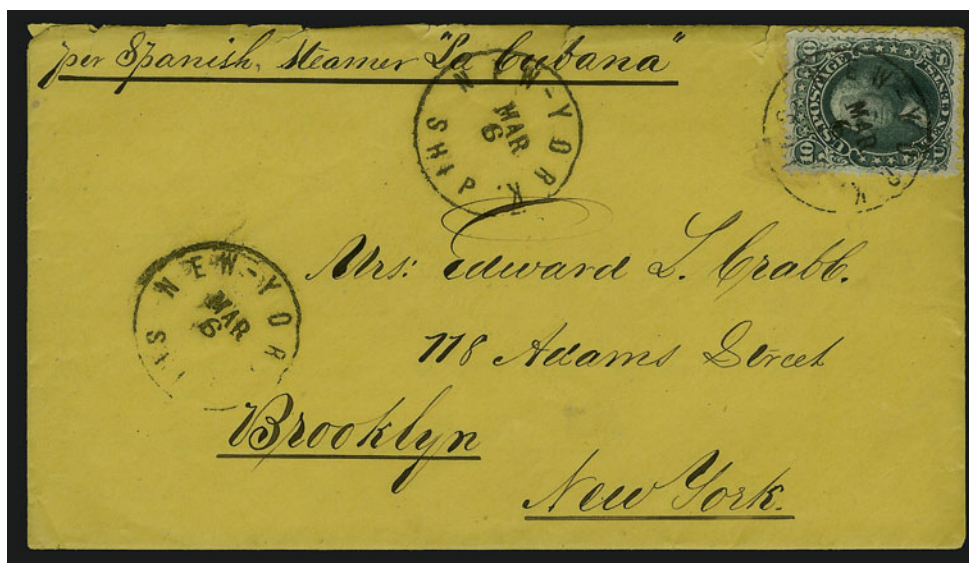 per Spanish Steamer "La Cubana"
NEW-YORK
MAR
6
SHIP
U.S. POSTAGE
TEN CENTS
10 10
U S
NEW-YORK
MAR
6
Mrs: Edward L. Crabb.
NEW-YOR
MAR
6
SHI
118 Adams Street
Brooklyn
New York.